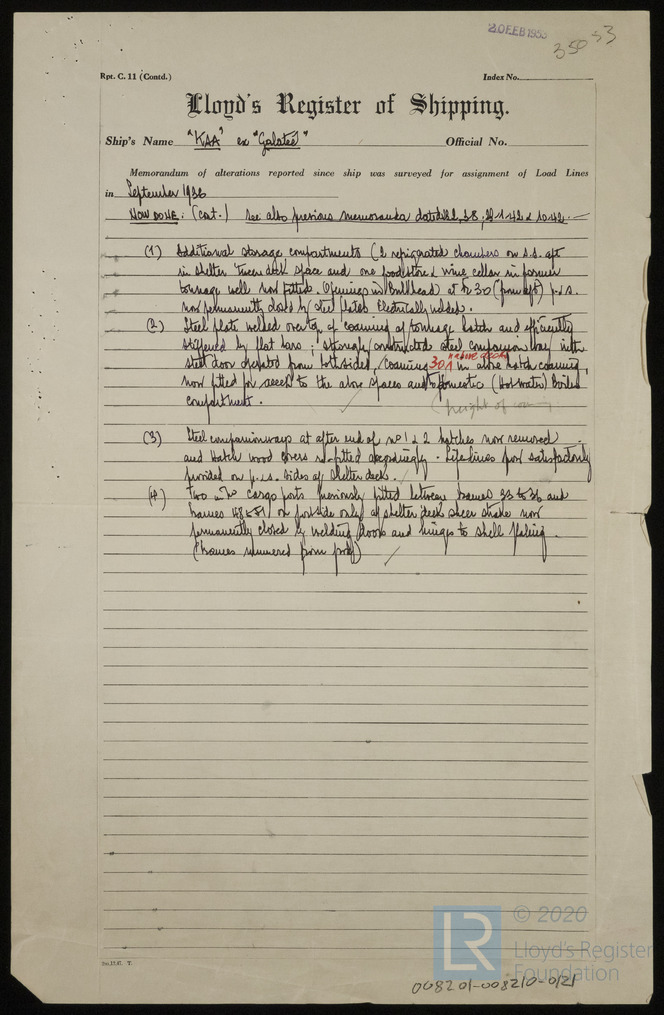 20 FEB 1953
35053
Rpt. C. 11 (Contd.)
Index No.
Lloyd's Register of Shipping.
Ship's Name "KAA" ex "Galatee"
Official No.
Memorandum of alterations reported since ship was surveyed for assignment of Load Lines
in September 1936
NOW DONE: (Cont.) See also previous memoranda dated
(1) Additional storage compartments (2 refrigerated chambers on s.s. aft
in shelter 'tween deck space and one foodstore & wine cellar in former
tonnage well now fitted. Openings in Bulkhead at fr 30 (from aft) p.&s.
now permanently closed by steel plates Electrically welded.
(2) Steel plate welded over top of coaming of tonnage hatch and efficiently
stiffened by flat bars; strongly constructed steel companion way with
steel door operated from both sides, coaming 30" in above hatch coaming,
above deck
now fitted for access to the above spaces and to domestic (Hot water) Boiler
compartment.
(height of
(3) Steel companionways at after end of No 1 & 2 hatches now removed
and hatch wood covers re-fitted accordingly. Lifelines now satisfactorily
provided on p.&s. sides of shelter deck.
(4) Two cargo ports previously fitted between frames 33 to 36 and
frames 78 & 81 on portside only of shelter deck sheer strake now
permanently closed by welding doors and hinges to shell plating.
(frames numbered from
T.
LR
© 2020
Lloyd's Register
Foundation
008201-008210-0121